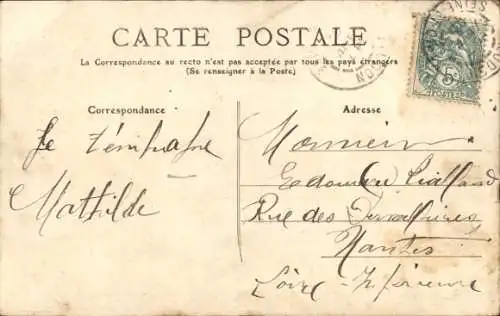 CARTE POSTALE
La Correspondance au recto n'est pas acceptée par tous les pays étrangers
(Se renseigner à la Poste)
Correspondance
Adresse
Je
Mathilde
Monsieur
Edouard
Rue des
Nantes
Loire-Inférieure
SEINE
5c
POSTES